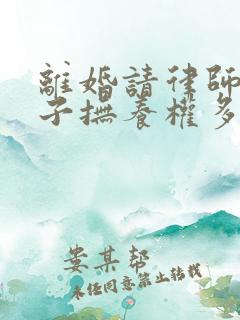 離婚請律師
子撫養權多
娄某帮
未经同意禁止转载